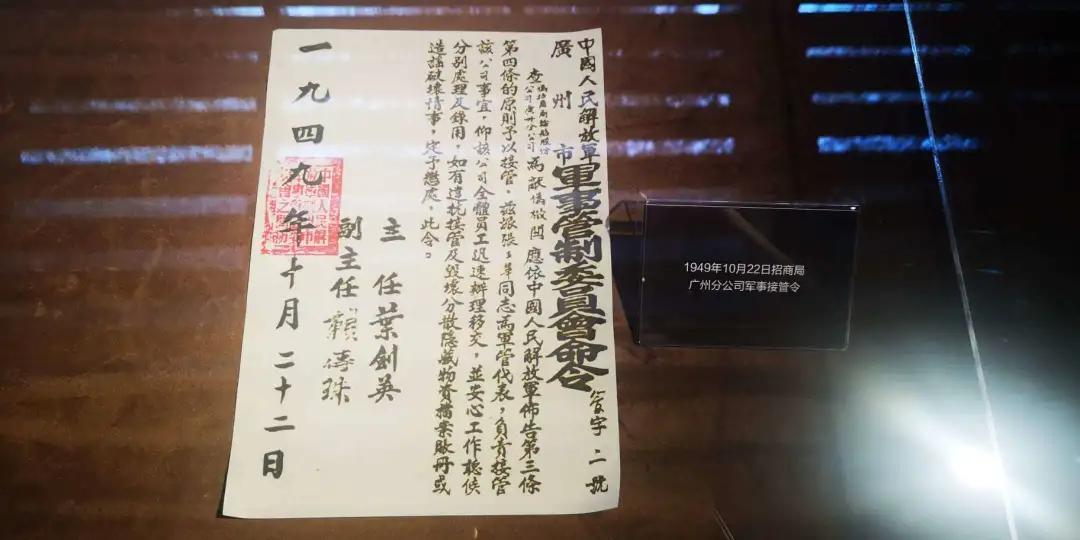 中國人民解放軍
廣州市
軍事管制委員會命令
管字二號
查
公司廣州分公司
為敵偽機關應依中國人民解放軍佈告第三條
第四條的原則予以接管。茲派張
華同志為軍管代表，負責接管
該公司事宜，仰該公司全體員工迅速辦理移交，並安心工作聽候
分別處理及錄用，如有違抗接管及毀壞分散隐藏物資檔案賬冊或
造謠破壞情事，定予懲處。此令。
主任葉劍英
副主任賴傳珠
一九四九年十月二十二日
1949年10月22日招商局
广州分公司军事接管令